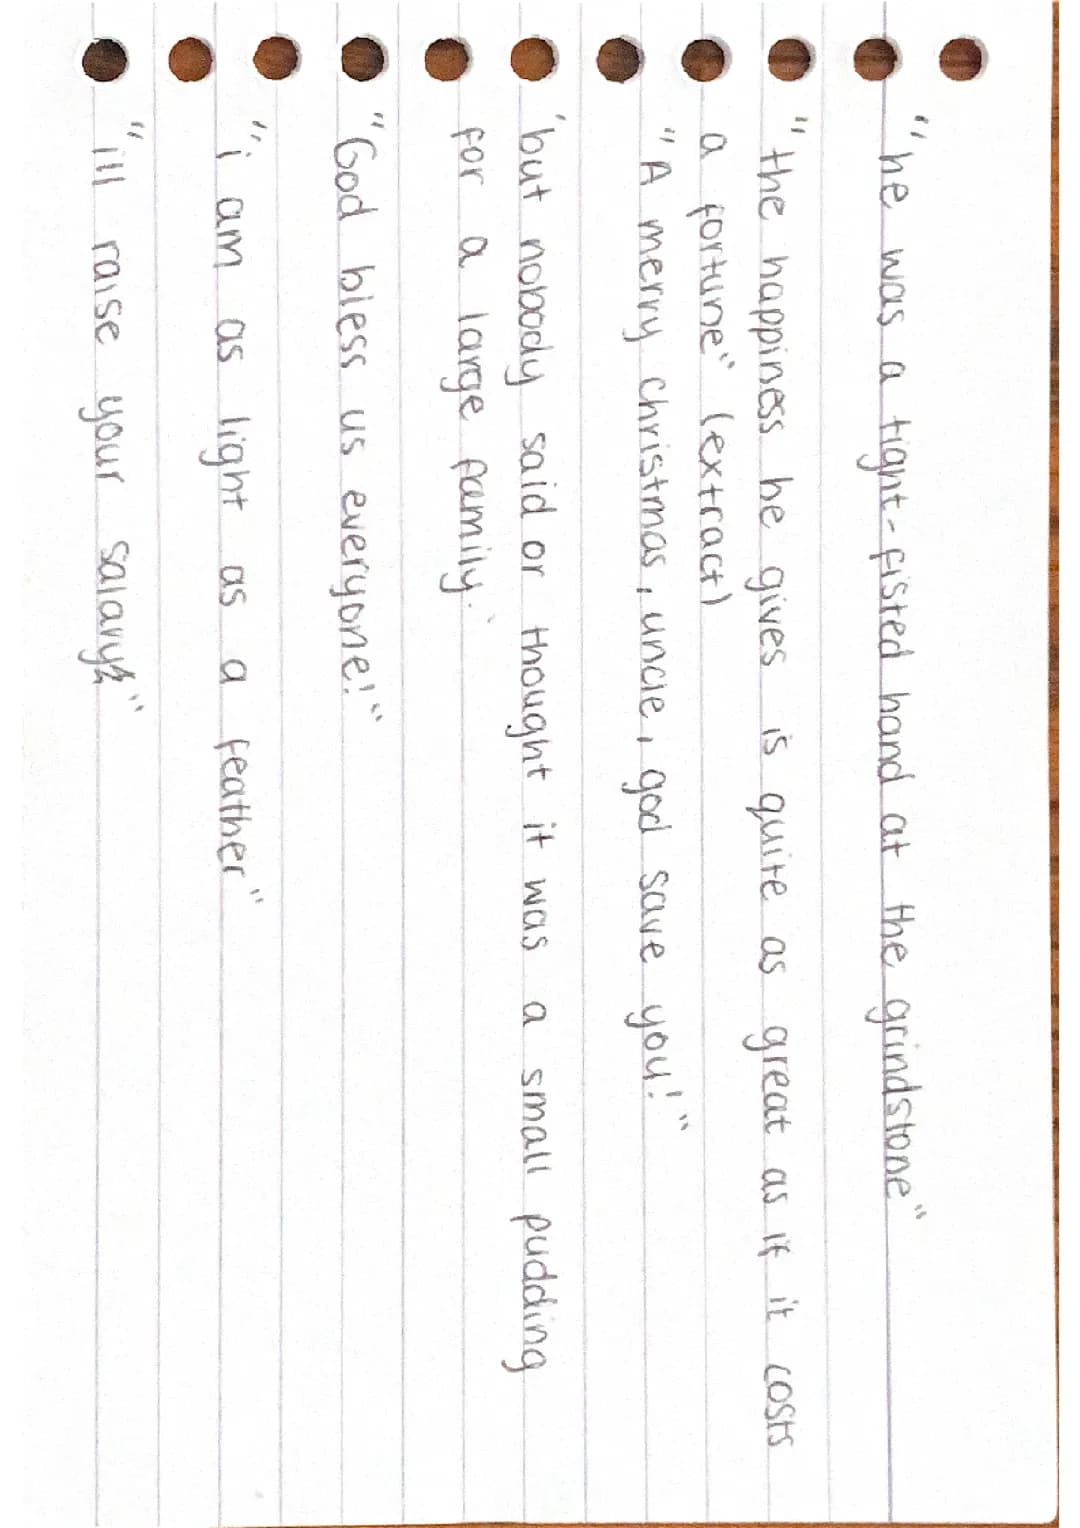 "he was a tight-fisted hand at the grindstone"
"the happiness he gives is quite as great as if it costs
a fortune" (extract)
"A merry christmas, uncle, god save you!"
'but nobody said or thought it was a small pudding
for a large family.'
"God bless us everyone!"
"i am as light as a feather"
"ill raise your salary"